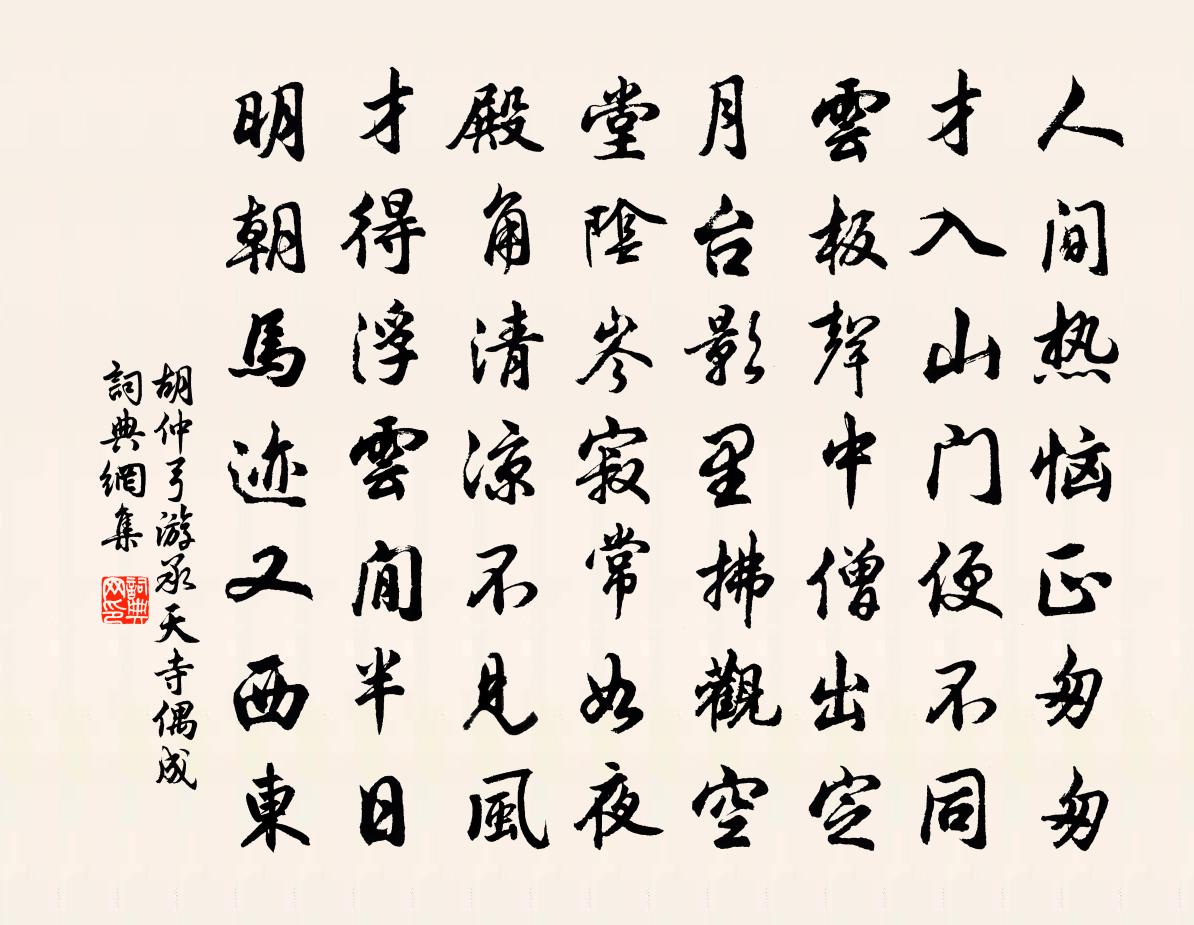 人间热恼正匆匆
才入山门便不同
雲板聲中僧出定
月台影里拂觀空
堂陰岑寂常如夜
殿角清涼不見風
才得浮雲閒半日
明朝馬迹又西東
胡仲弓游承天寺偶成
詞典網集
詞典网印